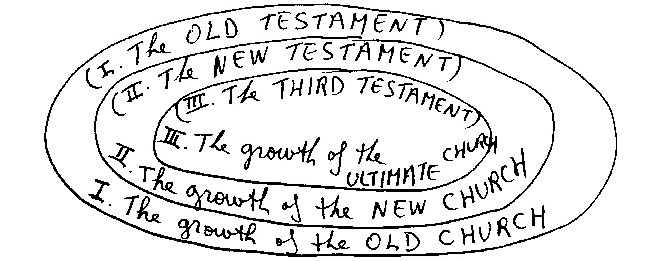 (I. The OLD TESTAMENT)
(II. The NEW TESTAMENT)
(III. The THIRD TESTAMENT)
III. The growth of the ULTIMATE CHURCH
II. The growth of the NEW CHURCH
I. The growth of the OLD CHURCH